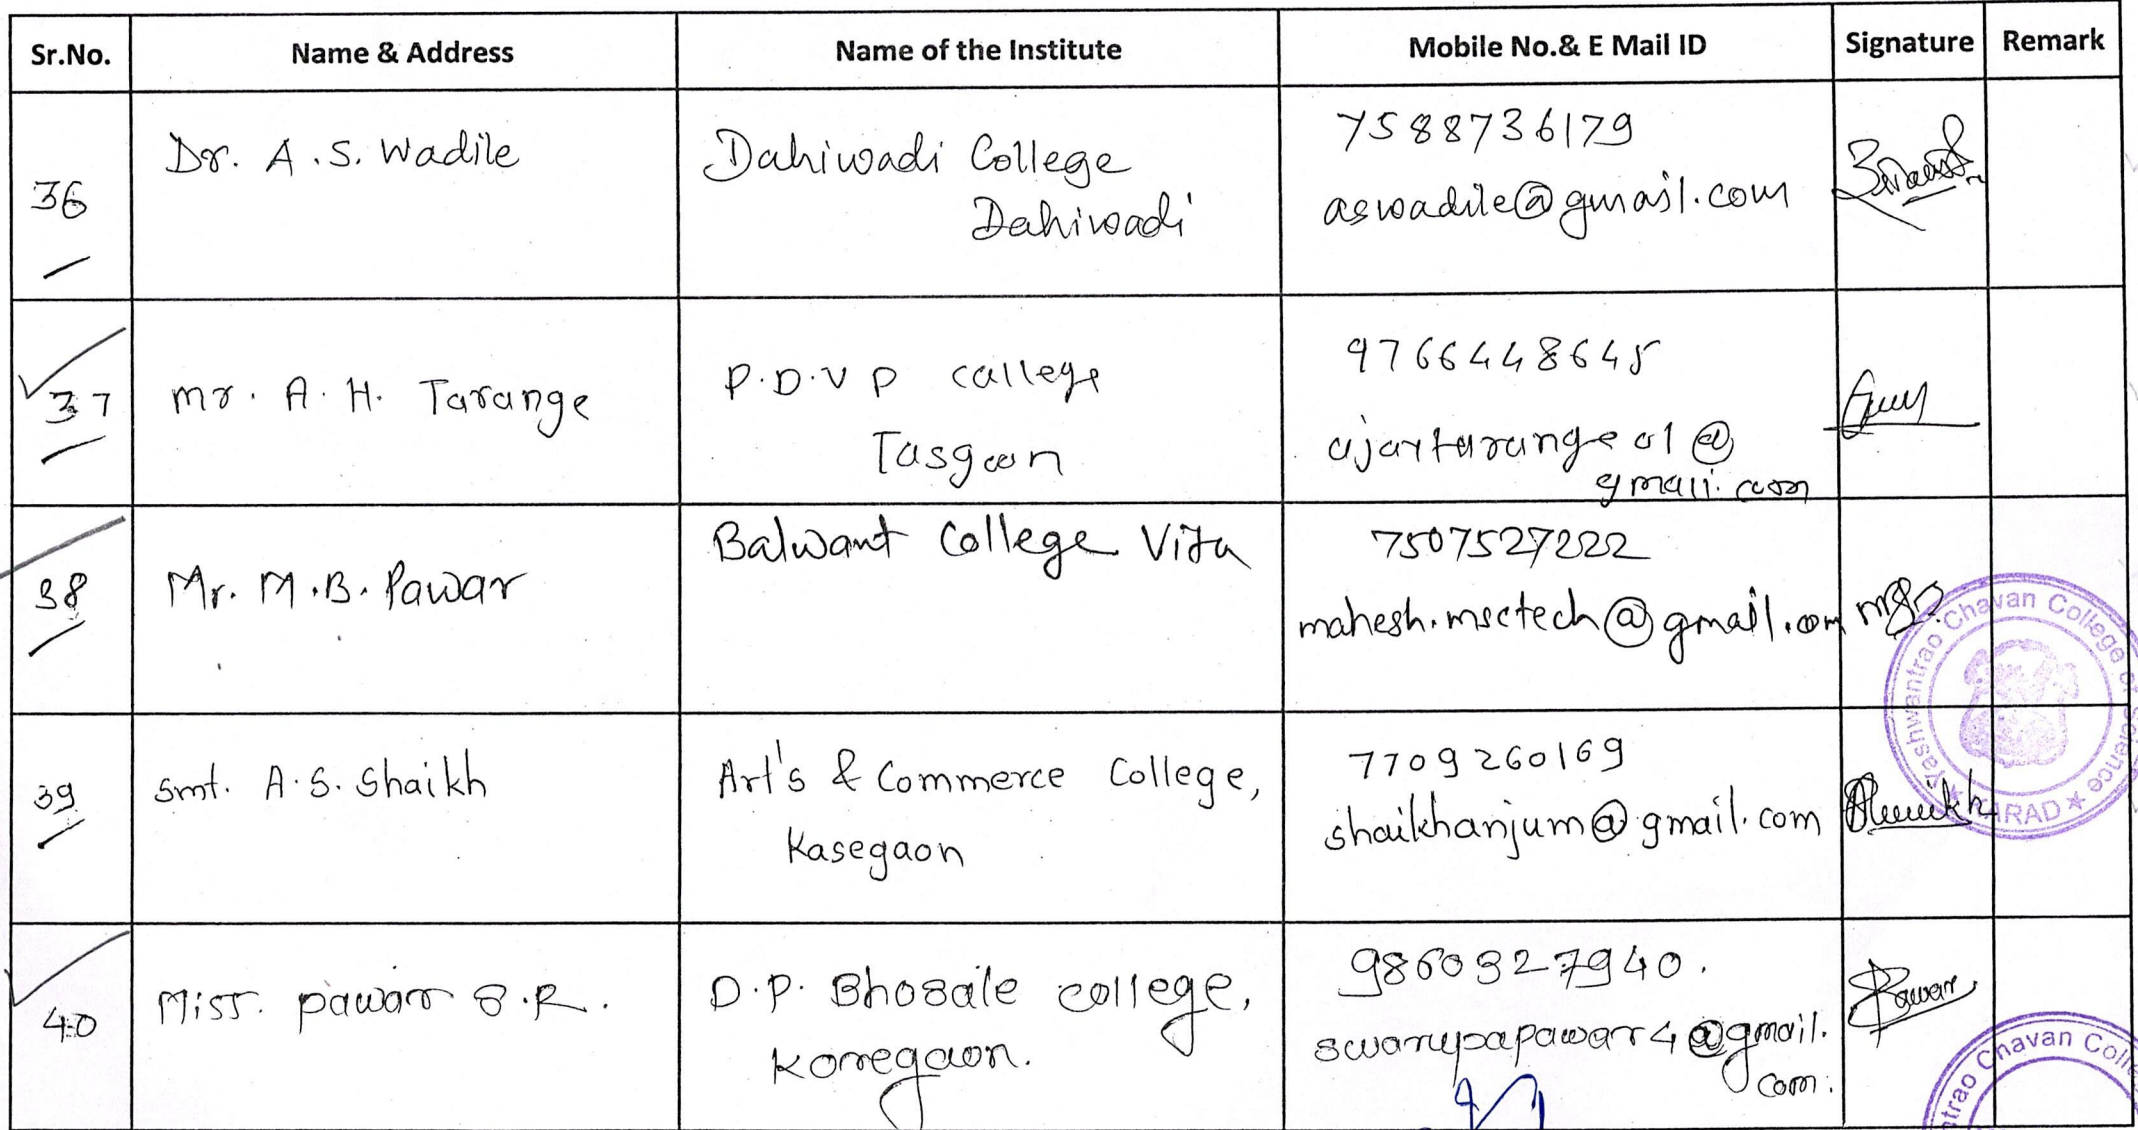 Sr.No. Name & Address Name of the Institute Mobile No.& E Mail ID Signature Remark
36
Dr. A.S. Wadile
Dahiwadi College
Dahiwadi
7588736179
aswadile@gmail.com
37
mr. A. H. Tarange
P.D.V P college
Tasgaon
9766448645
ajaytarange01@
gmail.com
38
Mr. M.B. Pawar
Balwant College Vita
7507527222
mahesh.msctech@gmail.com
39
Smt. A.S. Shaikh
Art's & Commerce College,
Kasegaon
7709260169
shaikhanjum@gmail.com
Yashwantrao Chavan College of Science
★ KARAD ★
40
Miss. pawar S.R.
D.P. Bhosale college,
Koregaon.
9860327940.
swarupapawar4@gmail.
com.
Pawar
Chavan